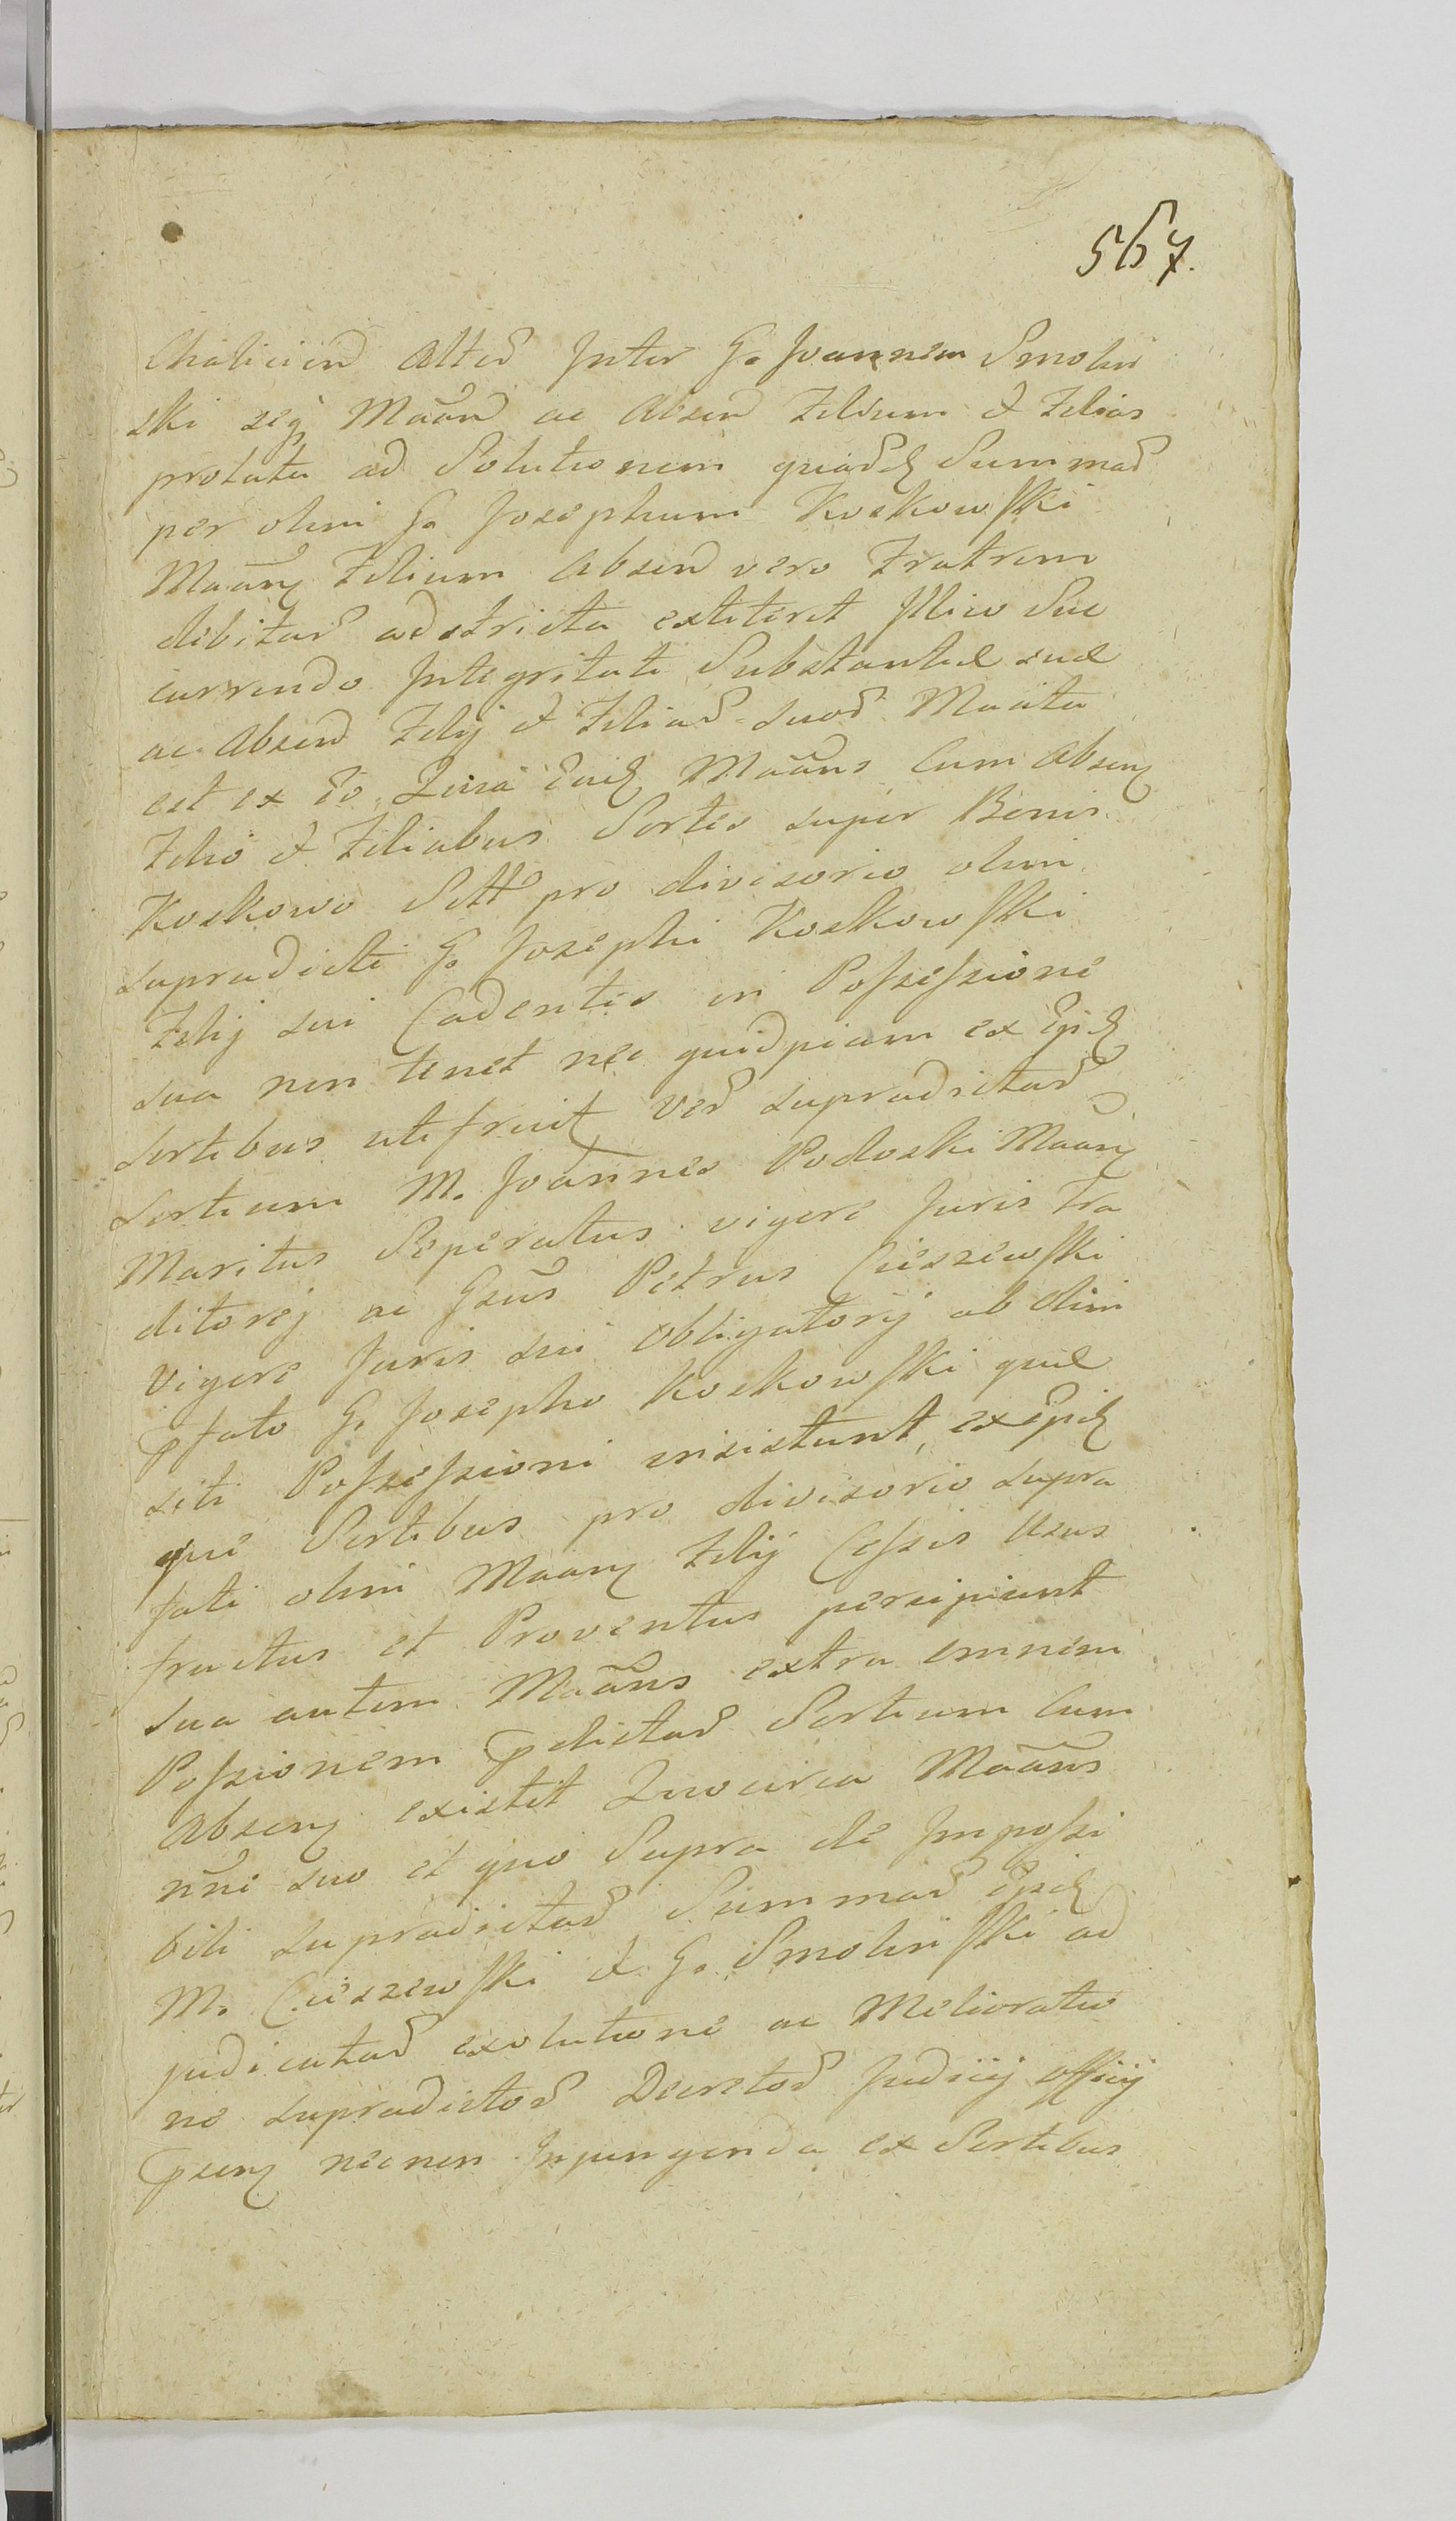 567.
Chalicien Alter Inter G. Joannem Smolin
ski seq Maan ac Absen Filium et Filias
prolata ad Solutionem quard Summar
per olim G. Josephum Koskowski
Maan Filium Absen vero Fratrem
debitar adstricta extiterit
currendo Integritati Substantiæ suæ
ac Absen Filij et Filiar suor Maata
est ex eo Quia Maans cum Absen
Filio et Filiabus Sortes super Bonis
Koskowo Sitt pro divisorio olim
supradicti G. Josephi Koskowski
Filij sui Cadentes in Possessione
sua non tenet nec quidpiam ex
Sortibus utifruit supradictar
Sortium M. Joannes Podoski Maan
Maritus Seperatus vigore Juris Tra
ditorij ac Gsus Petrus Cieszewski
vigore Juris sui obligatorij ab olim
pfato G. Josepho Koskowski quæ
siti Possessioni insistunt, ex
que Sortibus pro divisorio supra
fati olim Maan Filij Cessis Usus
fructus et Proventus percipiunt
Sua autem Maans extra omnem
Possionem pdictar Sortium cum
Absen existit Quocirca Maans
nni suo et quo Supra de Impossi
bili supradictar Summar
M. Cieszewski et G. Smolinski ad
judicatar exolutione ac Melioratio
ne supradictor Decretor Judicij officij
psen necnon Injungenda ex Sortibus